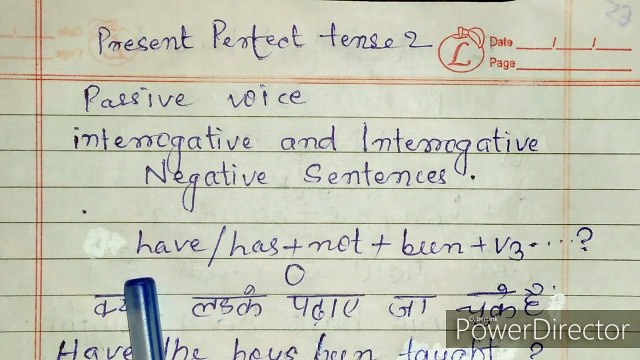 Present Perfect tense 2
Date / /
Page
Passive voice
interrogative and Interrogative
Negative Sentences.
have/has+not+been+v3....?
O
लडके पढ़ाए जा चुके हैं
Have the boys been taught ?
PowerDirector